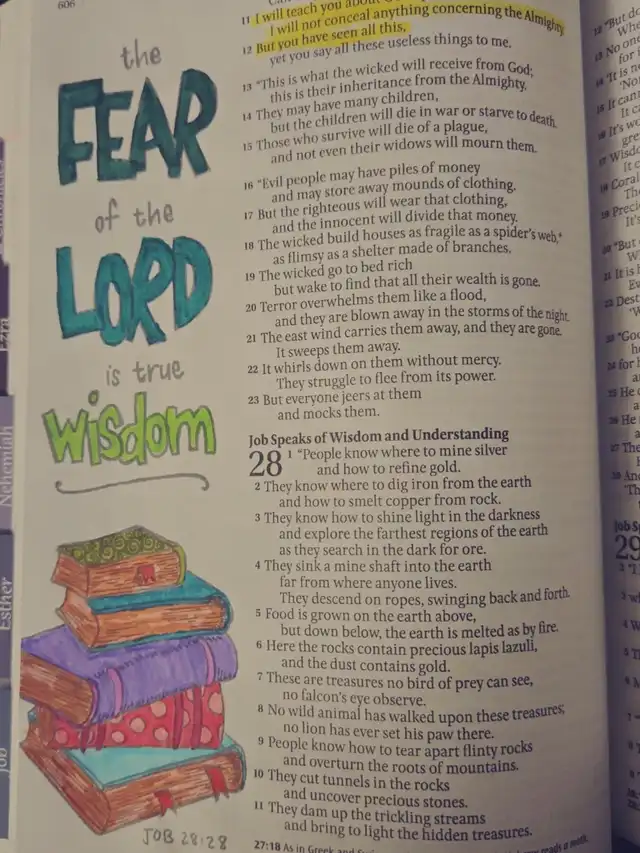 606
the
FEAR
of the
LORD
is true
wisdom
JOB 28:28
Nehemiah
Esther
Job
11 I will teach you about
I will not conceal anything concerning the Almighty.
12 But you have seen all this,
yet you say all these useless things to me.
13 “This is what the wicked will receive from God;
this is their inheritance from the Almighty.
14 They may have many children,
but the children will die in war or starve to death.
15 Those who survive will die of a plague,
and not even their widows will mourn them.
16 “Evil people may have piles of money
and may store away mounds of clothing.
17 But the righteous will wear that clothing,
and the innocent will divide that money.
18 The wicked build houses as fragile as a spider’s web,*
as flimsy as a shelter made of branches.
19 The wicked go to bed rich
but wake to find that all their wealth is gone.
20 Terror overwhelms them like a flood,
and they are blown away in the storms of the night.
21 The east wind carries them away, and they are gone.
It sweeps them away.
22 It whirls down on them without mercy.
They struggle to flee from its power.
23 But everyone jeers at them
and mocks them.
Job Speaks of Wisdom and Understanding
28 1 “People know where to mine silver
and how to refine gold.
2 They know where to dig iron from the earth
and how to smelt copper from rock.
3 They know how to shine light in the darkness
and explore the farthest regions of the earth
as they search in the dark for ore.
4 They sink a mine shaft into the earth
far from where anyone lives.
They descend on ropes, swinging back and forth.
5 Food is grown on the earth above,
but down below, the earth is melted as by fire.
6 Here the rocks contain precious lapis lazuli,
and the dust contains gold.
7 These are treasures no bird of prey can see,
no falcon’s eye observe.
8 No wild animal has walked upon these treasures;
no lion has ever set his paw there.
9 People know how to tear apart flinty rocks
and overturn the roots of mountains.
10 They cut tunnels in the rocks
and uncover precious stones.
11 They dam up the trickling streams
and bring to light the hidden treasures.
27:18 As in Greek and
12 “But do
13 No one
14 ‘It is n
15 It cann
16 It’s wo
17 Wisdo
18 Coral
19 Preci
20 “But
21 It is h
22 Dest
23 “Go
24 for h
25 He
26 He
27 The
28 An
Job S
29